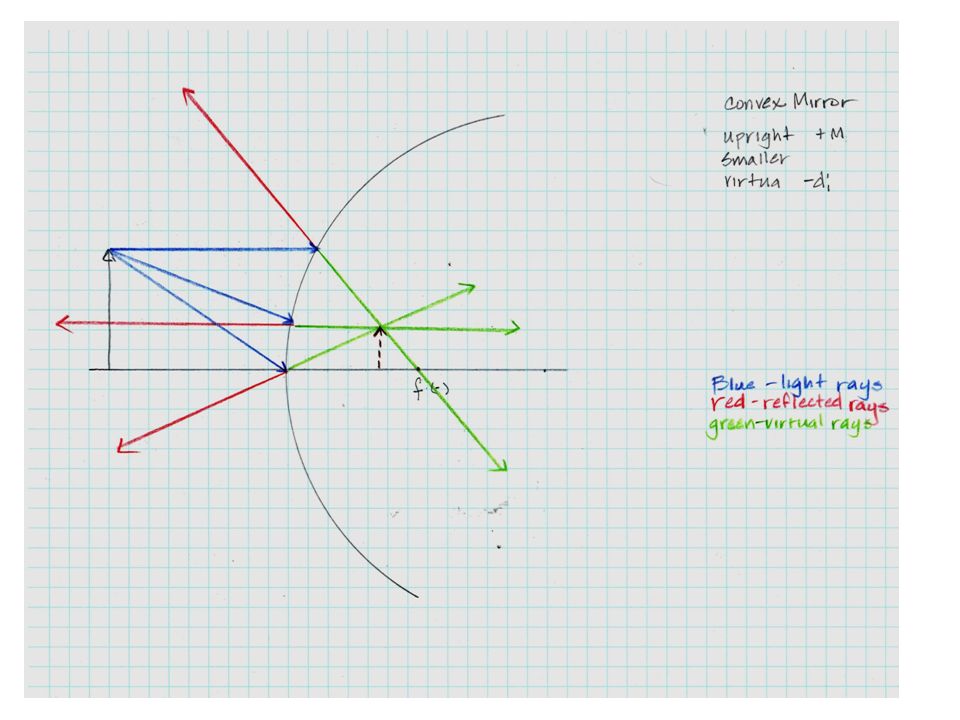 convex Mirror
upright +M
smaller
virtua -di
f (-)
Blue - light rays
red - reflected rays
green - virtual rays